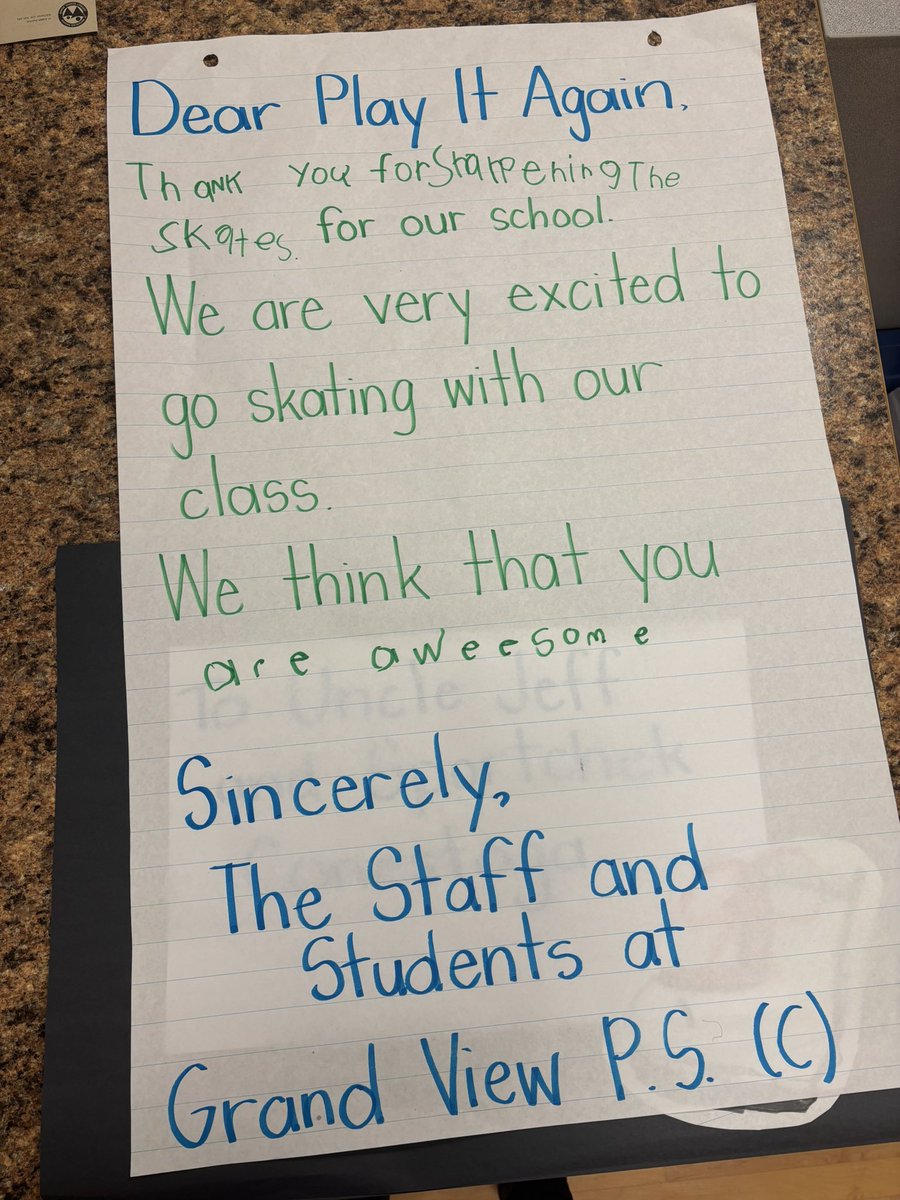 Dear Play It Again,
Thank you for Sharpening The
skates. for our school.
We are very excited to
go skating with our
class.
We think that you
are aweesome
To Uncle Jeff
Sincerely,
The Staff and
Students at
Grand View P.S. (C)